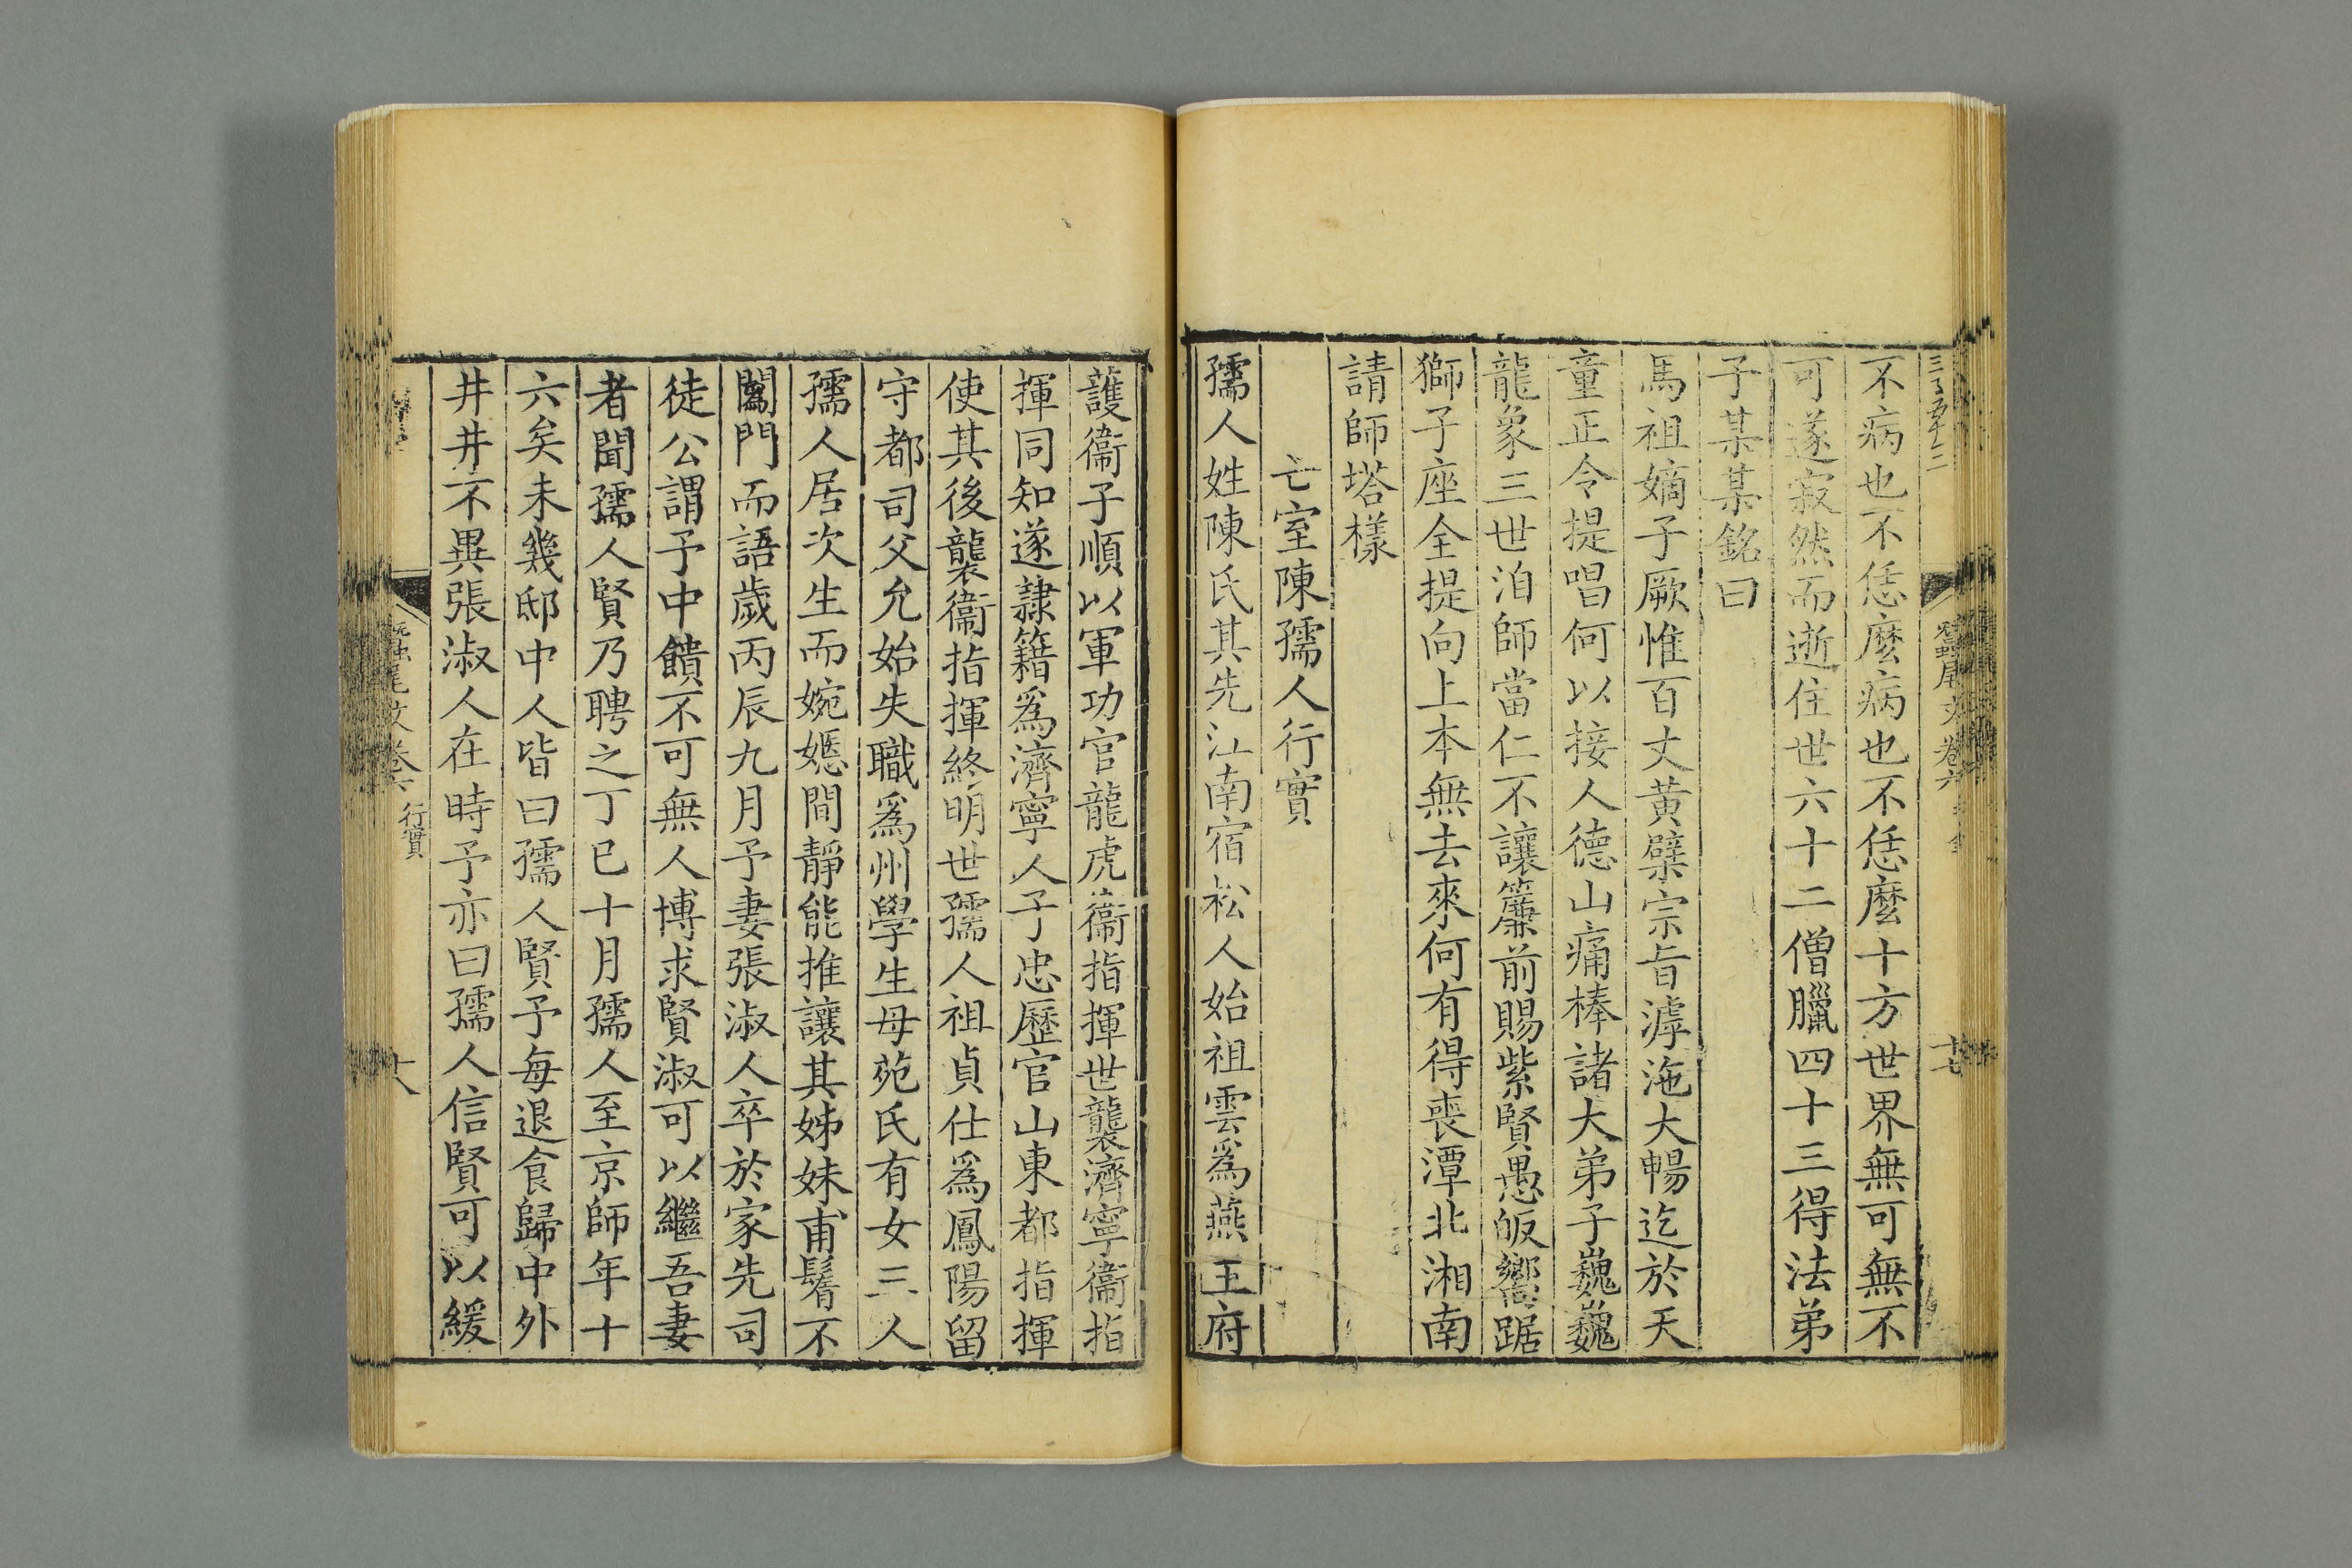 不病也不恁麼病也不恁麼十方世界無可無不
可遂寂然而逝住世六十二僧臘四十三得法弟
子某某銘曰
馬祖嫡子厥惟百丈黃檗宗旨滹沱大暢迄於天
童正令提唱何以接人德山痛棒諸大弟子巍巍
龍象三世洎師當仁不讓簾前賜紫賢愚皈嚮踞
獅子座全提向上本無去來何有得喪潭北湘南
請師塔樣
亡室陳孺人行實
孺人姓陳氏其先江南宿松人始祖雲爲燕王府
護衞子順以軍功官龍虎衞指揮世襲濟寧衞指
揮同知遂隷籍爲濟寧人子忠歷官山東都指揮
使其後襲衞指揮終明世孺人祖貞仕爲鳳陽留
守都司父允始失職爲州學生母苑氏有女三人
孺人居次生而婉嫕閒靜能推讓其姊妹甫鬌不
闖門而語歲丙辰九月予妻張淑人卒於家先司
徒公謂予中饋不可無人博求賢淑可以繼吾妻
者聞孺人賢乃聘之丁巳十月孺人至京師年十
六矣未幾邸中人皆曰孺人賢予每退食歸中外
井井不異張淑人在時予亦曰孺人信賢可以緩
蠶尾文卷六 行實
十八
蠶尾文卷六
十七